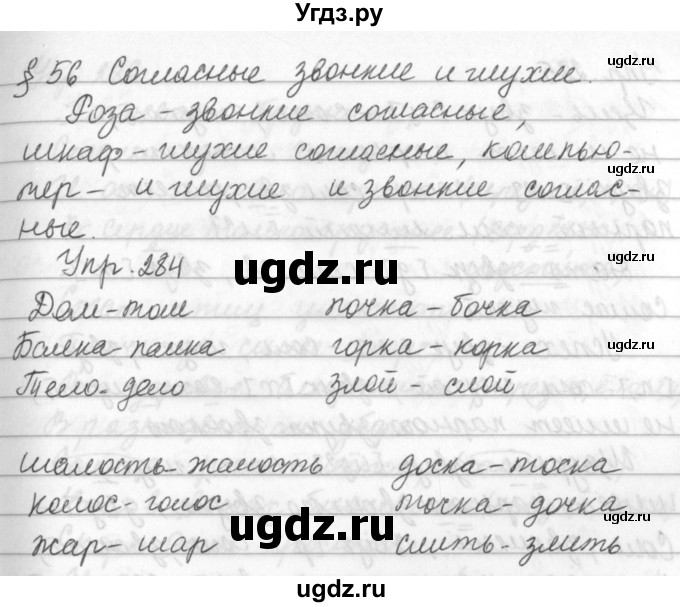 Угдз.ру
§ 56 Согласные звонкие и глухие.
ugdz.ru
Роза - звонкие согласные,
шкаф - глухие согласные, компью-
тер - и глухие и звонкие соглас-
ные.
ugdz.ru
Упр. 284
ugdz.ru
ugdz.ru
Дом - том почка - бочка
Балка - палка горка - корка
Тело - дело злой - слой
ugdz.ru
шалость - жалость доска - тоска
колос - голос точка - дочка
ugdz.ru
ugdz.ru
жар - шар слить - злить
ugdz.ru